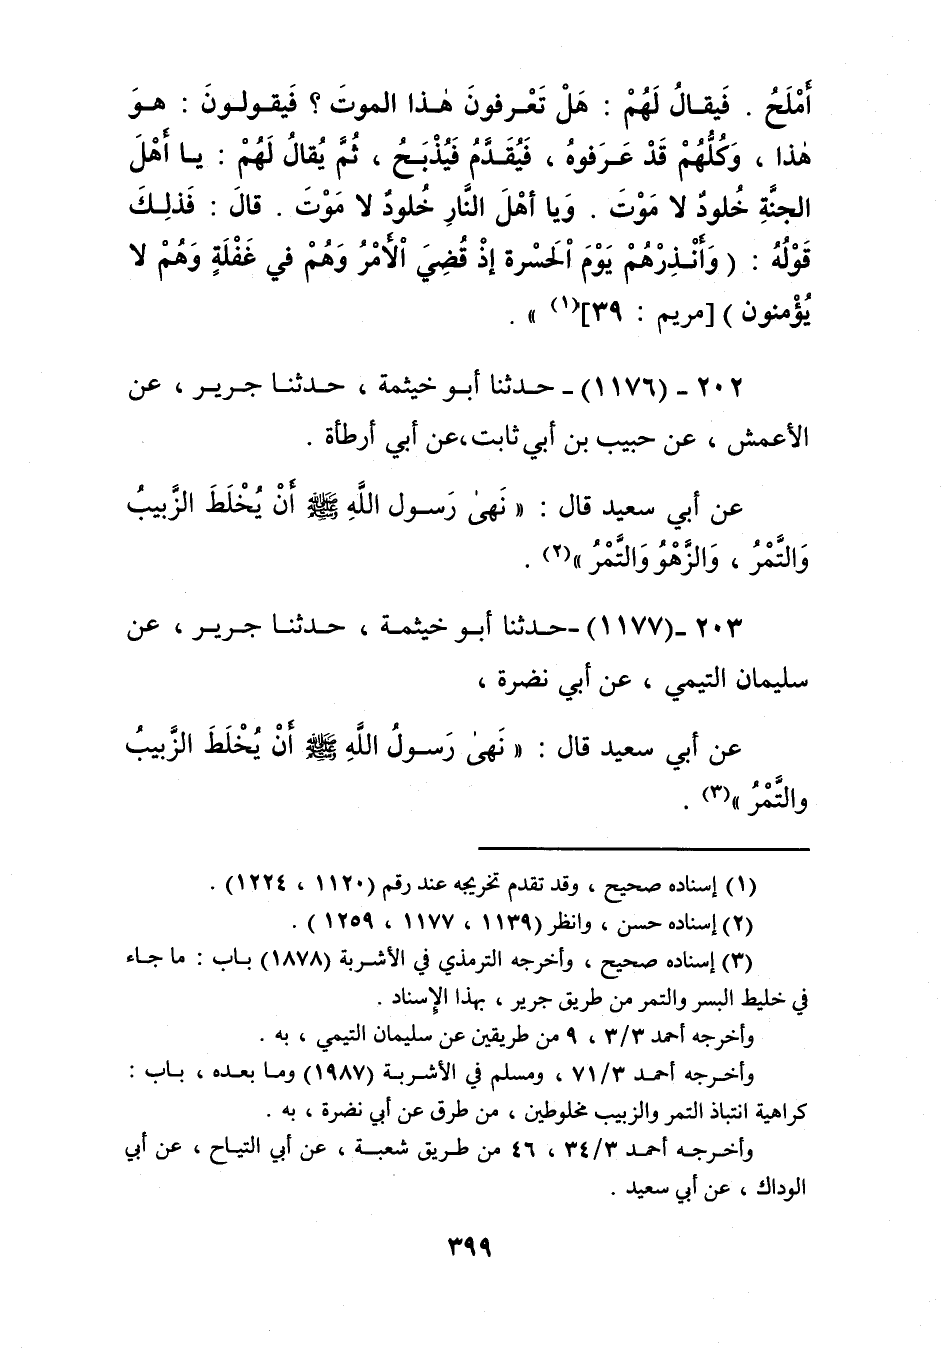 أَمْلَحُ . فَيقالُ لَهُمْ : هَلْ تَعْرفونَ هٰذا الموتَ ؟ فَيقولونَ : هوَ
هٰذا ، وَكُلُّهُمْ قَدْ عَرَفوهُ ، فَيُقَدَّمُ فَيُذْبَحُ ، ثُمَّ يُقالُ لَهُمْ : يا أَهْلَ
الجنَّةِ خُلودٌ لا مَوْتَ . وَيا أهْلَ النَّارِ خُلودٌ لا مَوْتَ . قالَ : فَذلِكَ
قَوْلُهُ : ( وَأَنْذِرْهُمْ يَوْمَ الْحَسْرة إذْ قُضِيَ الْأَمْرُ وَهُمْ في غَفْلَةٍ وَهُمْ لا
يُؤْمنون ) [مريم : ٣٩](١) » .
٢٠٢ - (١١٧٦) - حدثنا أبو خيثمة ، حدثنا جرير ، عن
الأعمش ، عن حبيب بن أبي ثابت،عن أبي أرطأة .
عن أبي سعيد قال : « نَهىٰ رَسول اللَّهِ ﷺ أَنْ يُخْلَطَ الزَّبيبُ
وَالتَّمْرُ ، وَالزَّهْوُ وَالتَّمْرُ »(٢) .
٢٠٣ -(١١٧٧) -حدثنا أبو خيثمة ، حدثنا جرير ، عن
سليمان التيمي ، عن أبي نضرة ،
عن أبي سعيد قال : « نَهىٰ رَسولُ اللَّهِ ﷺ أَنْ يُخْلَطَ الزَّبيبُ
والتَّمْرُ »(٣) .
(١) إسناده صحيح ، وقد تقدم تخريجه عند رقم (١١٢٠ ، ١٢٢٤) .
(٢) إسناده حسن ، وانظر (١١٣٩ ، ١١٧٧ ، ١٢٥٩ ) .
(٣) إسناده صحيح ، وأخرجه الترمذي في الأشربة (١٨٧٨) باب : ما جاء
في خليط البسر والتمر من طريق جرير ، بهذا الإسناد .
وأخرجه أحمد ٣/٣ ، ٩ من طريقين عن سليمان التيمي ، به .
وأخرجه أحمد ٧١/٣ ، ومسلم في الأشربة (١٩٨٧) وما بعده ، باب :
كراهية انتباذ التمر والزبيب مخلوطين ، من طرق عن أبي نضرة ، به .
وأخرجه أحمد ٣٤/٣ ، ٤٦ من طريق شعبة ، عن أبي التياح ، عن أبي
الوداك ، عن أبي سعيد .
٣٩٩